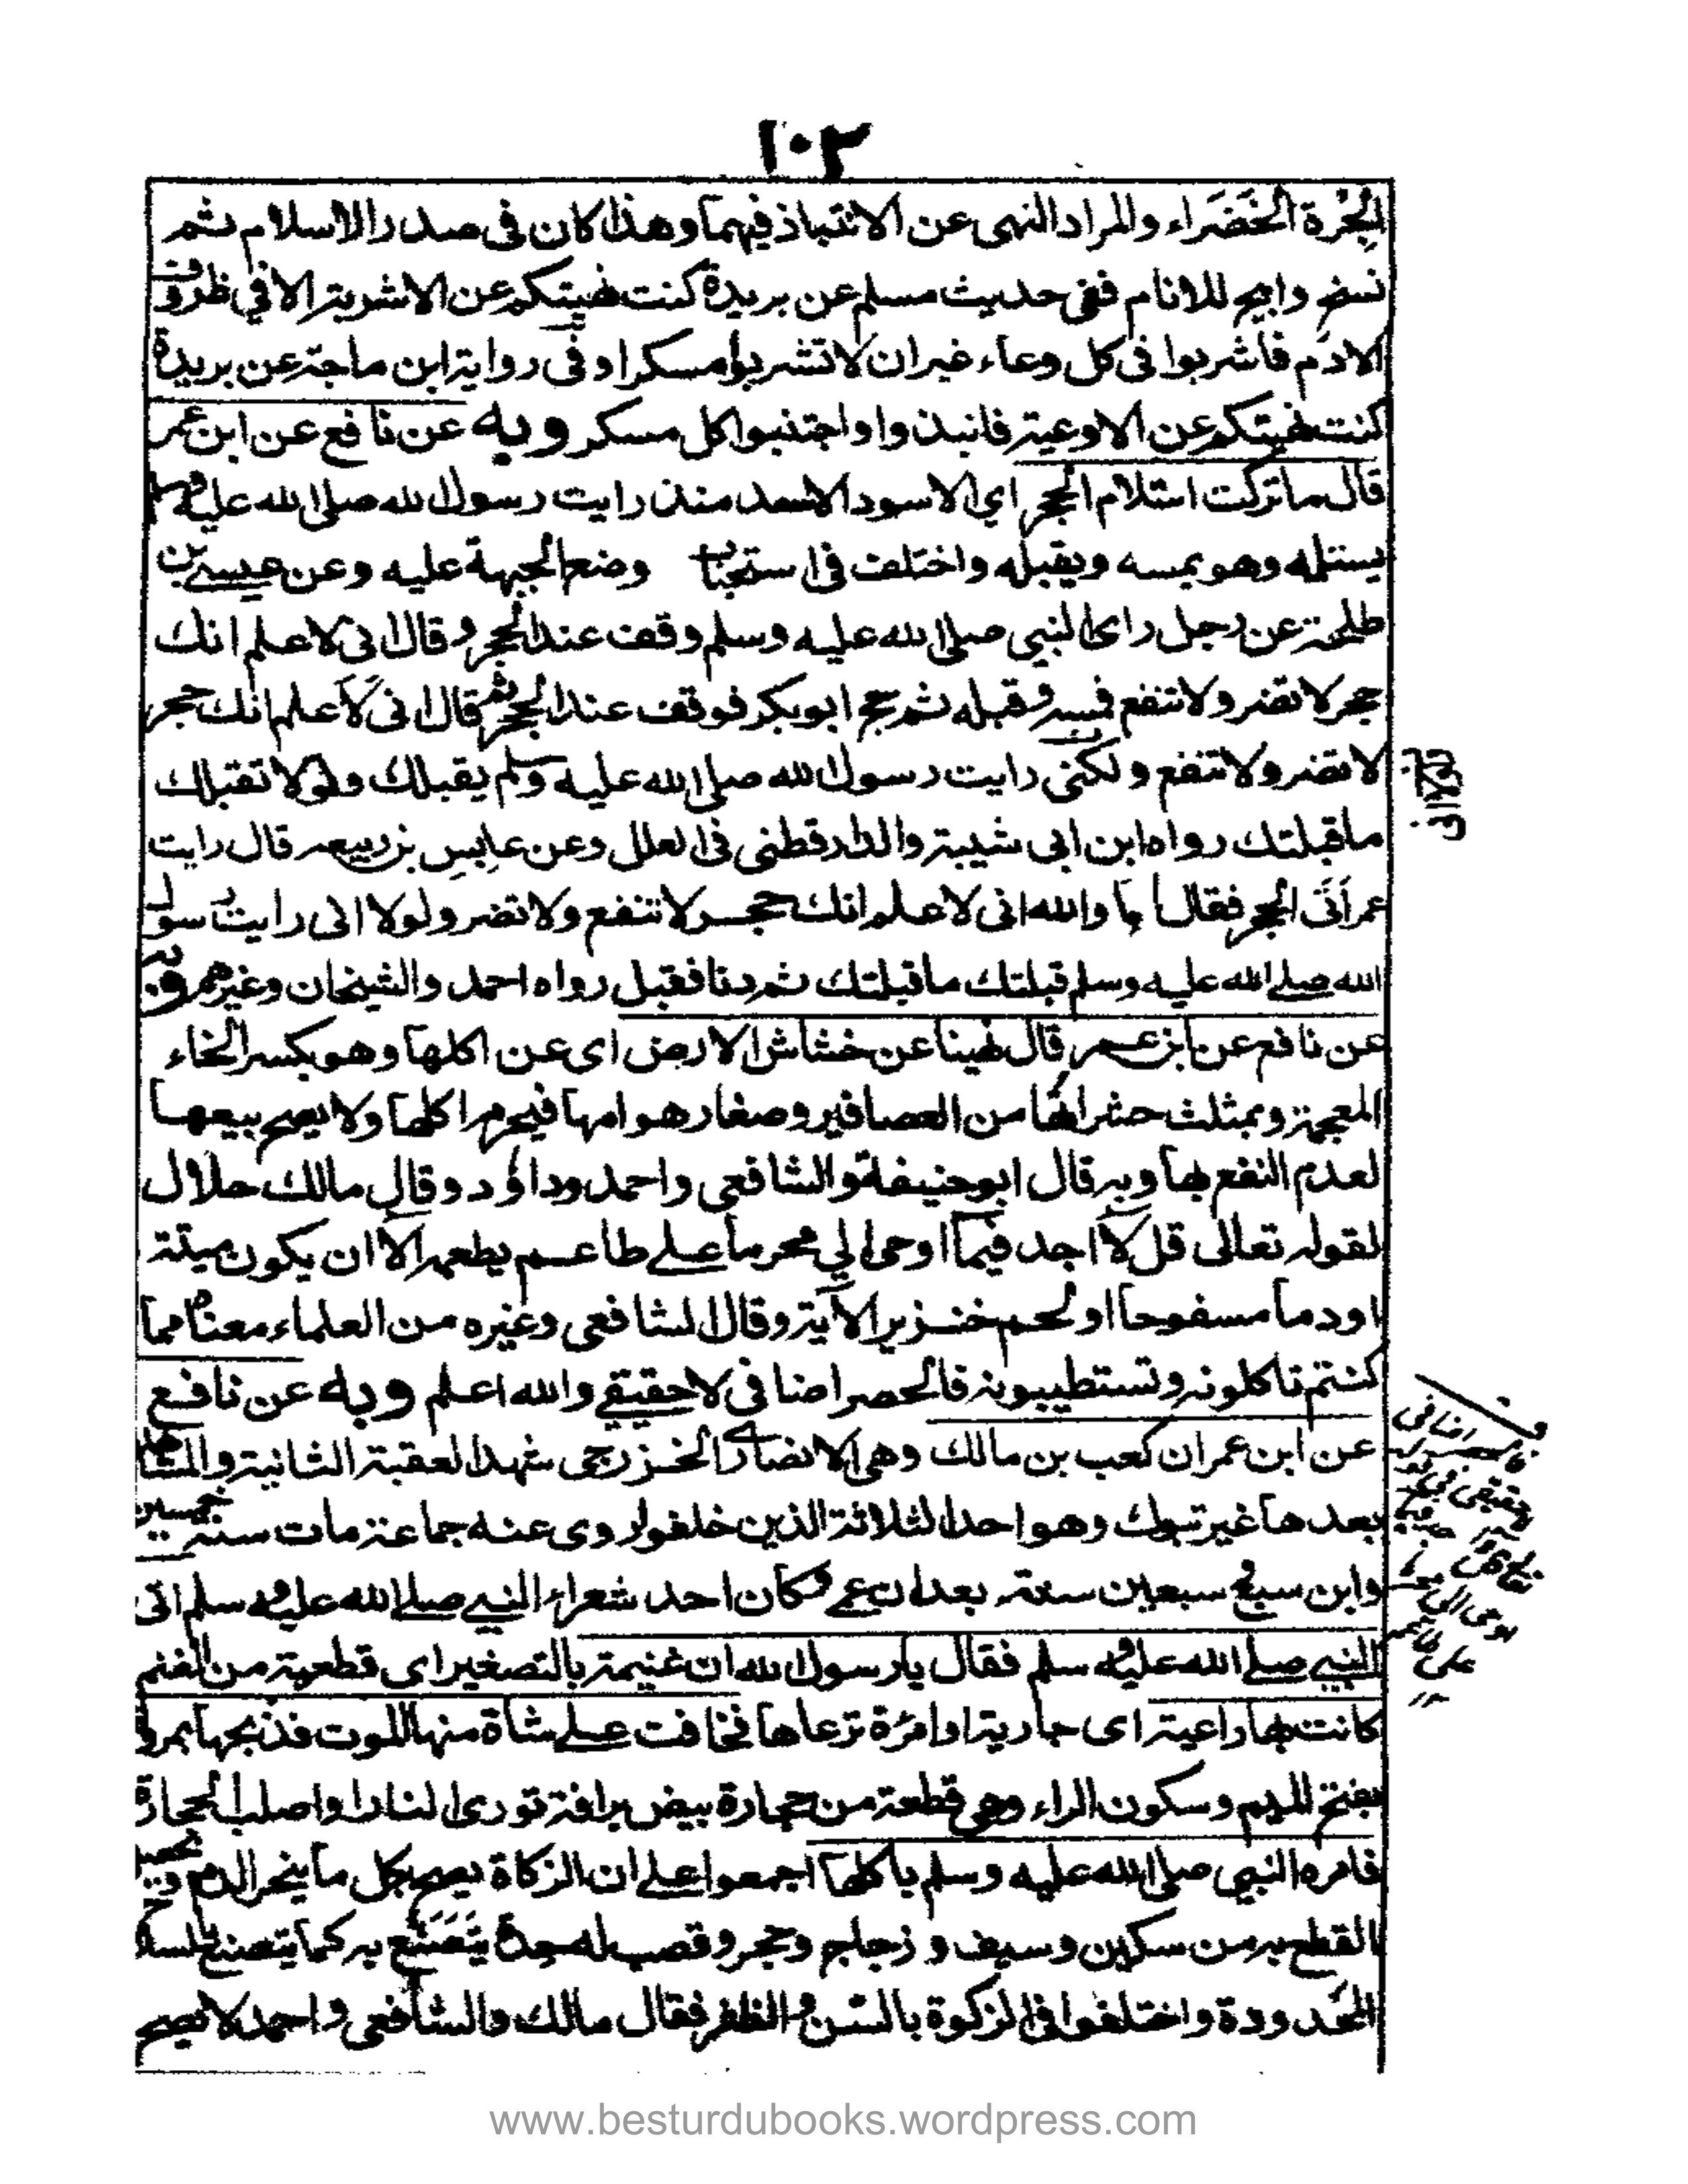 ١٠٢
الجُرة الخَضَراء والمراد النهى عن الانتباذ فيهما وهذا كان فى صدر الاسلام ثم
نسخ وابيح للانام ففى حديث مسلم عن بريدة كنت نهيتكم عن الاشربة الا في ظروف
الادم فاشربوا فى كل وعاء غير ان لا تشربوا مسكرا وفى رواية ابن ماجة عن بريدة
كنت نهيتكم عن الاوعية فانبذوا واجتنبوا كل مسكر وبه عن نافع عن ابن عمر
قال ما تركت استلام الحجر اي الاسود الاسعد منذ رايت رسول الله صلى الله عليه وسلم
يستلمه وهو يمسه ويقبله واختلف فى استحباب وضع الجبهة عليه وعن عيسى بن
طلحة عن رجل راى النبي صلى الله عليه وسلم وقف عند الحجر وقال انى لاعلم انك
حجر لا تضر ولا تنفع فمسه وقبله ثم حج ابوبكر فوقف عند الحجر ثم قال انى لاعلم انك حجر
لا تضر ولا تنفع ولكنى رايت رسول الله صلى الله عليه وسلم يقبلك ولولا تقبلك
ما قبلتك رواه ابن ابى شيبة والدارقطنى فى العلل وعن عابس بن ربيعه قال رايت
عمر اَتَى الحجر فقال اما والله انى لاعلم انك حجر لا تنفع ولا تضر ولولا انى رايت رسول
الله صلے الله عليه وسلم قبلتك ما قبلتك ثم دنا فقبل رواه احمد والشيخان وغيرهم وبه
عن نافع عن ابن عمر قال نهينا عن خشاش الارض اى عن اكلها وهو بكسر الخاء
المعجمة وبمثلث حشراتها من العصافير وصغار هوامها فيحرم اكلها ولا يصح بيعها
لعدم النفع بها وبه قال ابوحنيفة والشافعى واحمد وداؤد وقال مالك حلال
لقوله تعالى قل لآ اجد فيمآ اوحى الي محرما علے طاعم يطعمه الآ ان يكون ميتة
او دما مسفوحا او لحم خنزير الآية وقال الشافعى وغيره من العلماء معناه مما
كنتم تاكلونه وتستطيبونه فالحصر اضافى لا حقيقے والله اعلم وبه عن نافع
عن ابن عمر ان كعب بن مالك وهى الانصارے الخزرجى شهد العقبة الثانية والمشاهد
بعدها غير تبوك وهو احد الثلاثة الذين خلفوا روى عنه جماعة مات سنة خمسين
وابن سبع سبعين سنة بعد ان عمى وكان احد شعراء النبي صلے الله عليه وسلم اتى
النبي صلے الله عليه وسلم فقال يا رسول الله ان غنيمة بالتصغير اى قطعية من الغنم
كانت بها راعية اى جارية او امرءة ترعاها فخافت علے شاة منها الموت فذبحها بمروة
بفتح الميم وسكون الراء وهى قطعة من حجارة بيض براقة تورى النار او اصلب الحجارة
فامره النبي صلى الله عليه وسلم باكلها اجمعوا علے ان الزكاة يصح بكل ما ينحر الدم ويحصل
القطع به من سكين وسيف وزجاج وحجر وقصب له حدة يَتَصَنَّع به كما يتصنع بالسلاح
المحدودة واختلفوا فى الزكوة بالسن والظفر فقال مالك والشافعى واحمد لا يصح
www.besturdubooks.wordpress.com